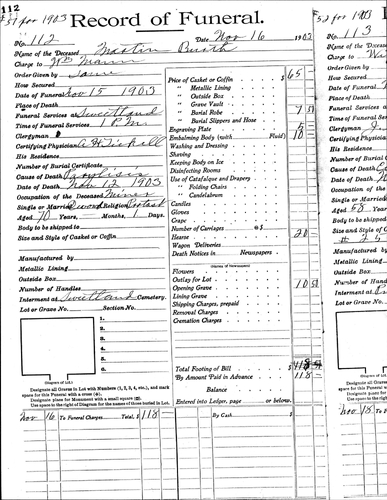 112
Record of Funeral.
No. 112 Date Nov 16 190
Name of the Deceased Martin
Charge to
Order Given by Same
How Secured
Date of Funeral Nov 15 1903
Place of Death
Funeral Services at Sweetland
Time of Funeral Services 1 P.M.
Clergyman
Certifying Physician
His Residence
Number of Burial Certificate
Cause of Death Paralisis
Date of Death Nov 12 1903
Occupation of the Deceased Miner
Single or Married Religion
Aged 70 Years, Months, 1 Days
Body to be shipped to
Size and Style of Casket or Coffin
Manufactured by
Metallic Lining
Outside Box
Number of Handles
Interment at Sweetland Cemetery.
Lot or Grave No. Section No.
1.
2.
3.
4.
5.
6.
(Diagram of Lot.)
Designate all Graves in Lot with Numbers (1, 2, 3, 4, etc.), and mark
space for this Funeral with a cross (+).
Designate place for Monument with a small square (□).
Use space to right of Diagram for the names of those buried in Lot.
Nov 16 To Funeral Charges Total, $ 118
Price of Casket or Coffin $ 65
" Metallic Lining
" Outside Box
" Grave Vault
" Burial Robe 7 50
" Burial Slippers and Hose
Engraving Plate
Embalming Body (with Fluid) 10
Washing and Dressing
Shaving
Keeping Body on Ice
Disinfecting Rooms
Use of Catafalque and Drapery
" Folding Chairs
" Candelabrum
Candles
Gloves
Crape
Number of Carriages @ $
Hearse 20
Wagon Deliveries
Death Notices in Newspapers
(Names of Newspapers)
Flowers
Outlay for Lot
Opening Grave 10 50
Lining Grave
Shipping Charges, prepaid
Removal Charges
Cremation Charges
Total Footing of Bill $ 118
By Amount Paid in Advance 118
Balance
Entered into Ledger, page or below.
By Cash $
No. 113
Name of the Deceased
Charge to
Order Given by
How Secured
Date of Funeral
Place of Death
Funeral Services
Time of Funeral
Clergyman
Certifying Physician
His Residence
Number of Burial
Cause of Death
Date of Death
Occupation of the
Single or Married
Aged 68 Years,
Body to be shipped
Size and Style of
Manufactured by
Metallic Lining
Outside Box
Number of Handles
Interment at
Lot or Grave No.
Designate all Graves
space for this Funeral
Designate place for
Use space to right of
Nov 18 To Fun